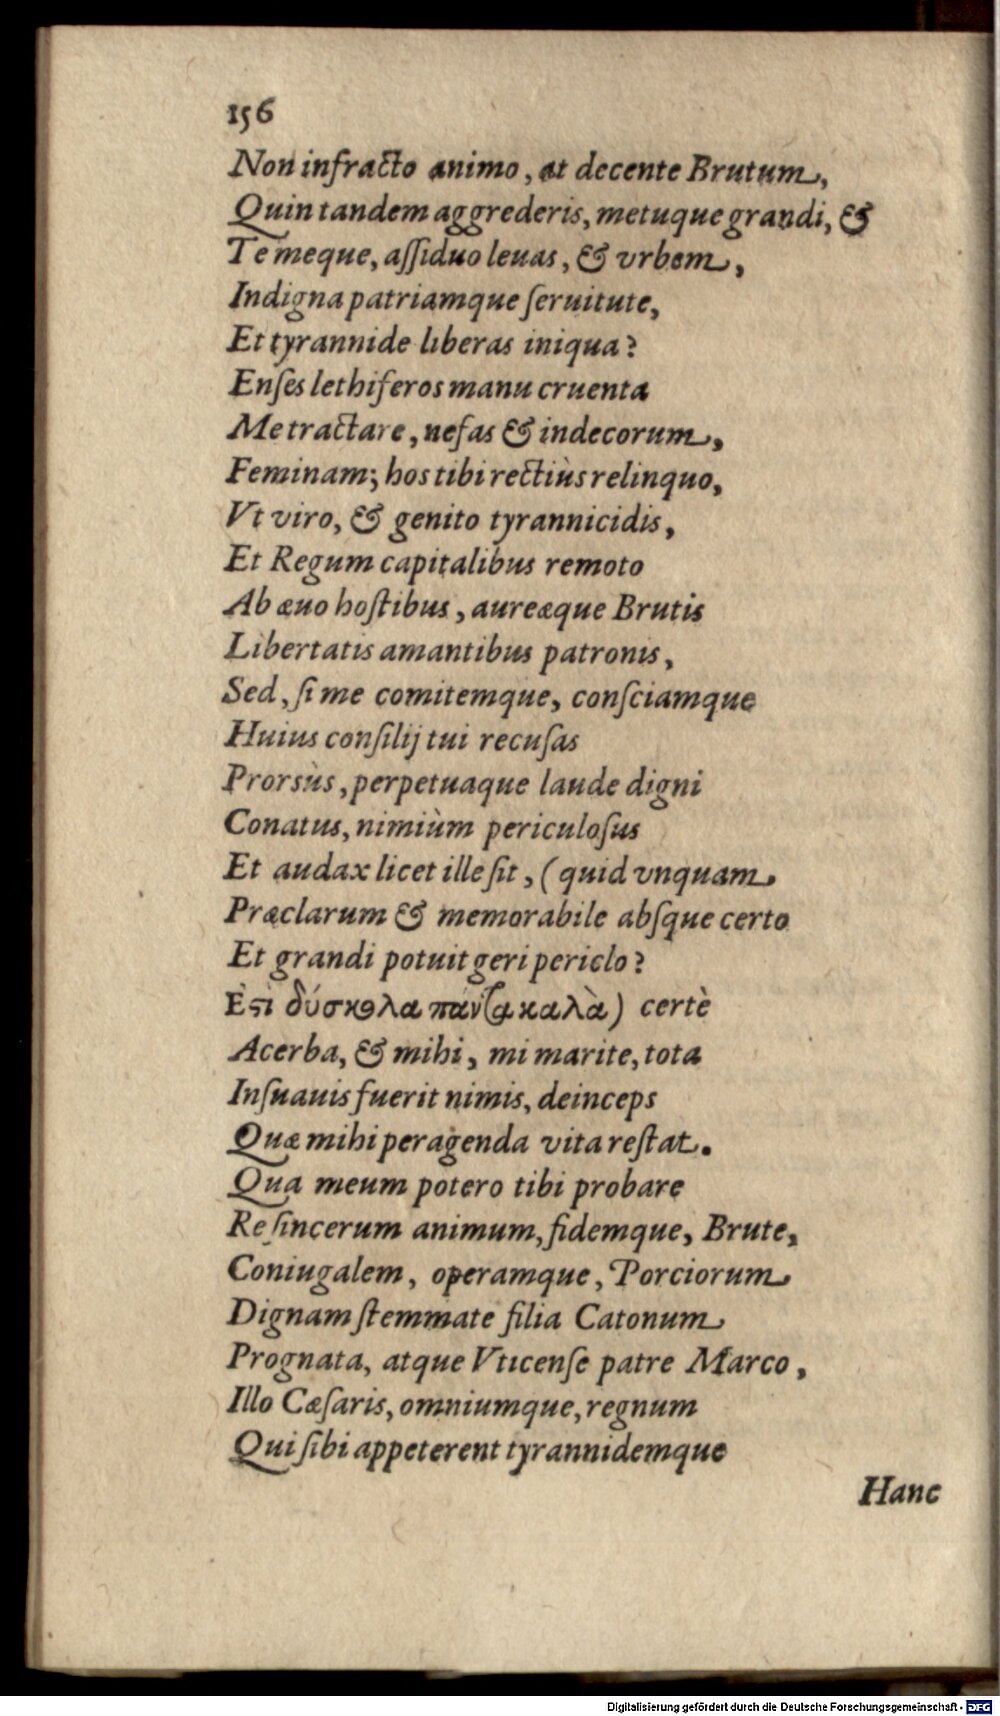 156
Non infracto animo, at decente Brutum,
Quin tandem aggrederis, metuque grandi, &
Te meque, aſſiduo leuas, & vrbem,
Indigna patriamque ſeruitute,
Et tyrannide liberas iniqua?
Enſes lethiferos manu cruenta
Me tractare, nefas & indecorum,
Feminam; hos tibi rectiùs relinquo,
Vt viro, & genito tyrannicidis,
Et Regum capitalibus remoto
Ab æuo hoſtibus, aureæque Brutis
Libertatis amantibus patronis,
Sed, ſi me comitemque, conſciamque
Huius conſilij tui recuſas
Prorsùs, perpetuaque laude digni
Conatus, nimiùm periculoſus
Et audax licet ille ſit, (quid vnquam
Præclarum & memorabile abſque certo
Et grandi potuit geri periclo?
Ἐςὶ δύσκολα πάντα καλὰ) certè
Acerba, & mihi, mi marite, tota
Inſuauis fuerit nimis, deinceps
Quæ mihi peragenda vita reſtat.
Qua meum potero tibi probare
Re ſincerum animum, fidemque, Brute,
Coniugalem, operamque, Porciorum
Dignam ſtemmate filia Catonum
Prognata, atque Vticenſe patre Marco,
Illo Cæſaris, omniumque, regnum
Qui ſibi appeterent tyrannidemque
Hanc
Digitalisierung gefördert durch die Deutsche Forschungsgemeinschaft - DFG